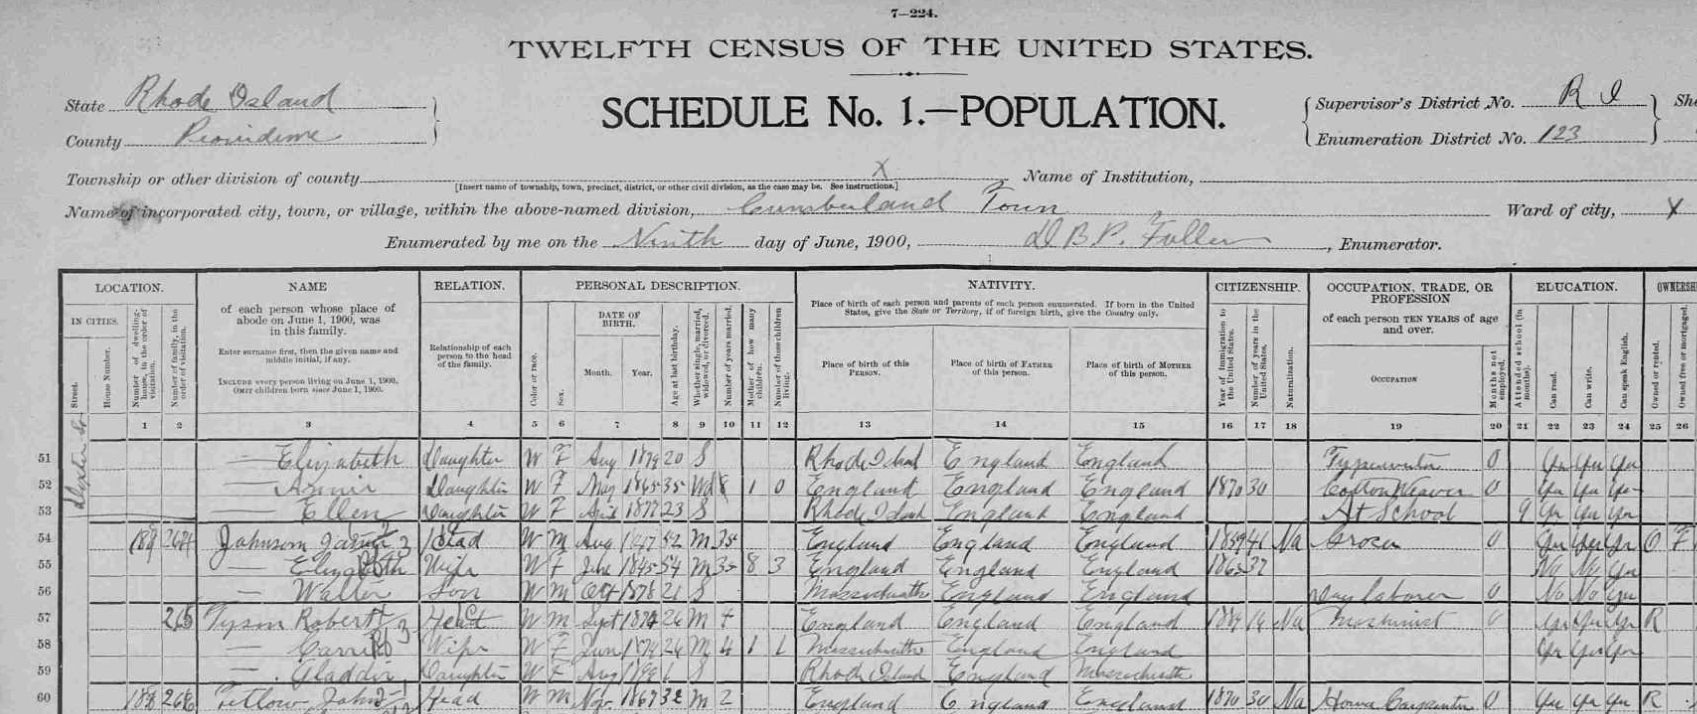 7—224.
TWELFTH CENSUS OF THE UNITED STATES.
State Rhode Island
County Providence
SCHEDULE No. 1.—POPULATION.
Supervisor's District No. R I
Enumeration District No. 123
She
Township or other division of county X
[Insert name of township, town, precinct, district, or other civil division, as the case may be. See instructions.]
Name of Institution,
Name of incorporated city, town, or village, within the above-named division, Cumberland Town
Ward of city, X
Enumerated by me on the Ninth day of June, 1900, D B P. Fuller, Enumerator.
LOCATION. NAME RELATION. PERSONAL DESCRIPTION. NATIVITY. CITIZENSHIP. OCCUPATION, TRADE, OR PROFESSION EDUCATION. OWNERSH
IN CITIES.
Street.
House Number.
Number of dwelling-house, in the order of visitation.
Number of family, in the order of visitation.
of each person whose place of abode on June 1, 1900, was in this family.
Enter surname first, then the given name and middle initial, if any.
INCLUDE every person living on June 1, 1900.
OMIT children born since June 1, 1900.
Relationship of each person to the head of the family.
Color or race.
Sex.
DATE OF BIRTH.
Month. Year.
Age at last birthday.
Whether single, married, widowed, or divorced.
Number of years married.
Mother of how many children.
Number of these children living.
Place of birth of each person and parents of each person enumerated. If born in the United States, give the State or Territory; if of foreign birth, give the Country only.
Place of birth of this PERSON.
Place of birth of FATHER of this person.
Place of birth of MOTHER of this person.
Year of immigration to the United States.
Number of years in the United States.
Naturalization.
of each person TEN YEARS of age and over.
OCCUPATION
Months not employed.
Attended school (in months).
Can read.
Can write.
Can speak English.
Owned or rented.
Owned free or mortgaged.
1 2 3 4 5 6 7 8 9 10 11 12 13 14 15 16 17 18 19 20 21 22 23 24 25 26
51 — Elizabeth Daughter W F Aug 1879 20 S Rhode Island England England Typewriter 0 Yes Yes Yes
52 — Annie Daughter W F May 1865 35 Wd 8 1 0 England England England 1870 30 Cotton Weaver 0 Yes Yes Yes
53 — Ellen Daughter W F 1877 23 S Rhode Island England England At School 9 Yes Yes Yes
54 189 264 Johnson Head W M Aug 1847 52 M 35 England England England 1859 41 Na Grocer 0 Yes Yes Yes O F
55 — Elizabeth Wife W F June 1845 54 M 35 8 3 England England England 1863 37 No No Yes
56 — Walter Son W M Oct 1878 21 S Massachusetts England England Day laborer 0 No No Yes
57 265 Tyson Robert Head W M Sept 26 M 4 England England England Na Machinist 0 Yes Yes Yes R
58 — Carrie Wife W F June 1874 26 M 4 1 1 Massachusetts England England Yes Yes Yes
59 — Daughter W F Aug 1 S Rhode Island England Massachusetts
60 266 Tetlow John Head W M Nov. 1867 32 M 2 England England England 1870 30 Na House Carpenter 0 Yes Yes Yes R